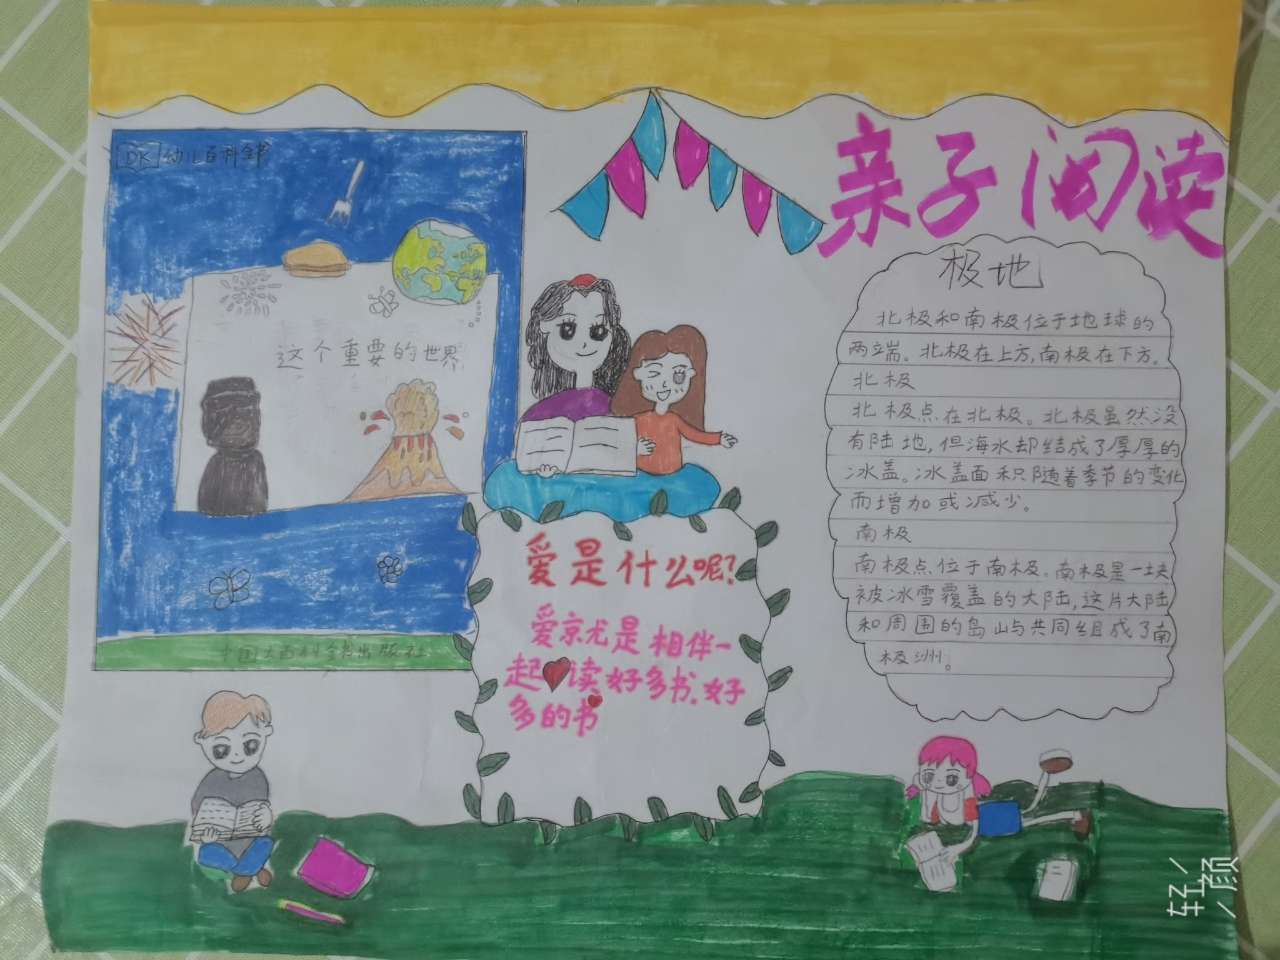 亲子阅读
DK 幼儿百科全书
这个重要的世界
中国大百科全书出版社
爱是什么呢?
爱京尤是相伴一
起读好多书.好
多的书
极地
北极和南极位于地球的
两端。北极在上方,南极在下方。
北极
北极点在北极。北极虽然没
有陆地,但海水却结成了厚厚的
冰盖。冰盖面积随着季节的变化
而增加或减少。
南极
南极点位于南极。南极是一块
被冰雪覆盖的大陆,这片大陆
和周围的岛屿共同组成了南
极洲。
轻颜